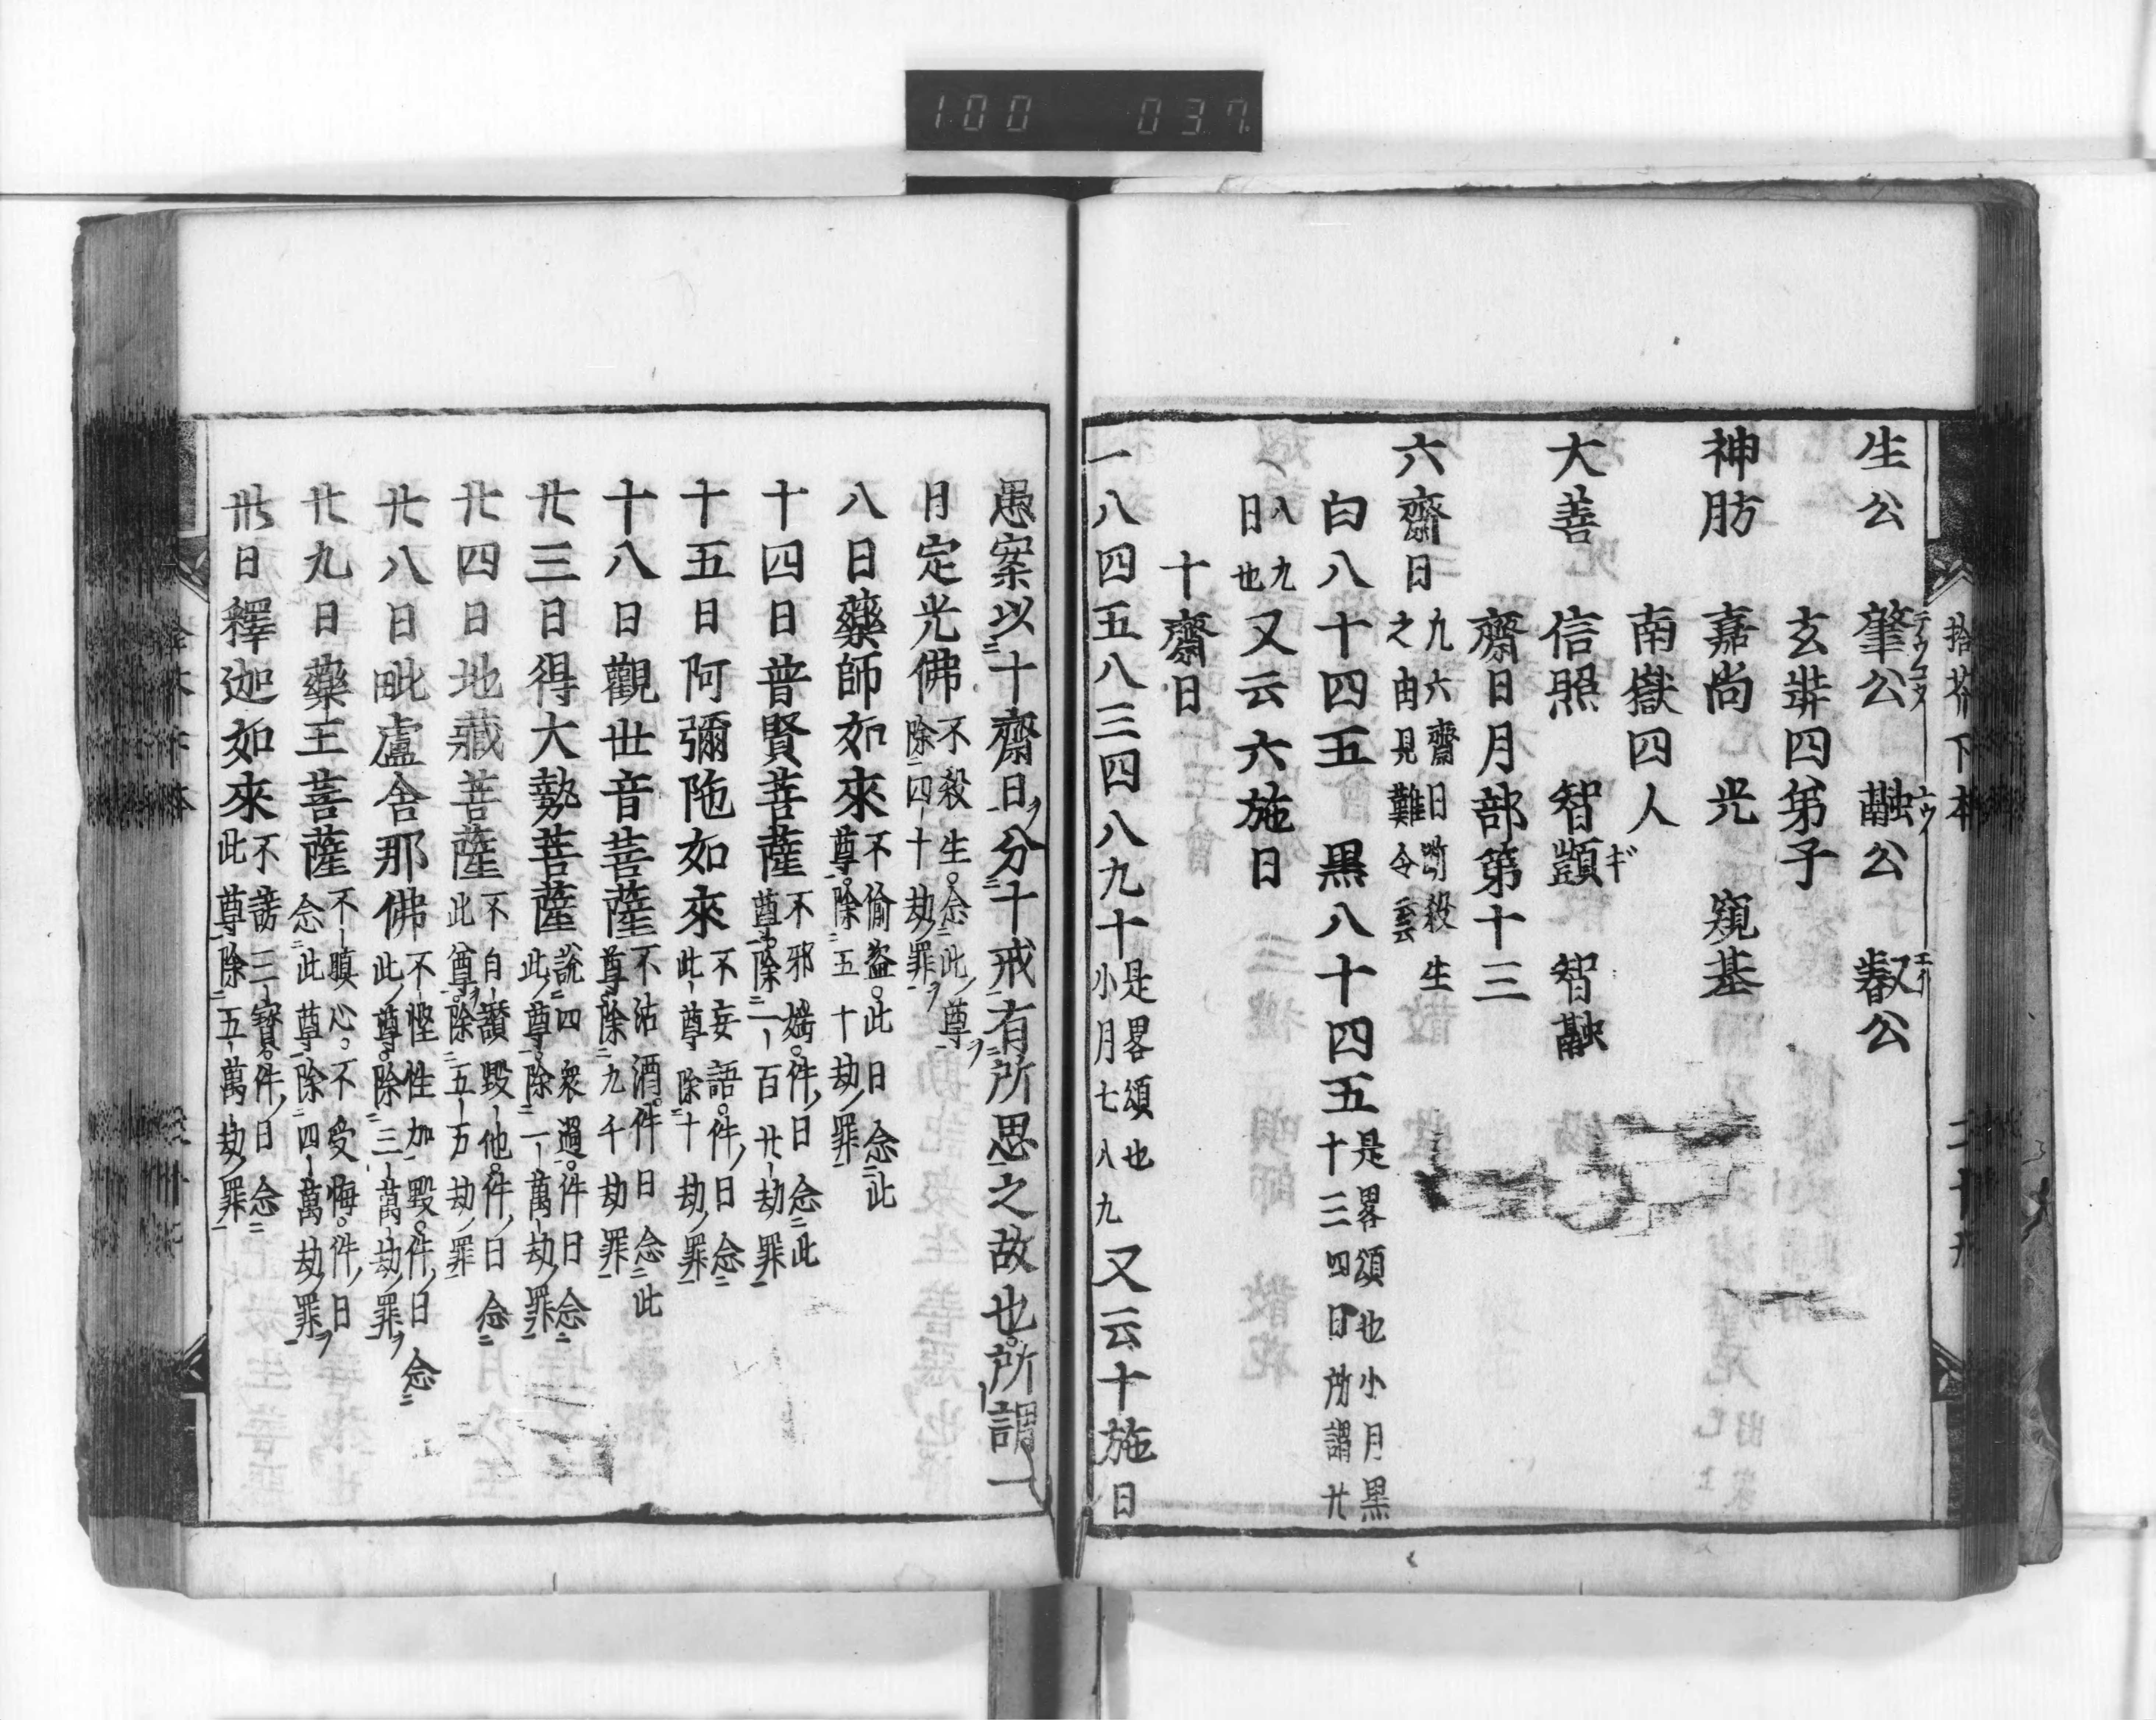 100 037
拾芥下本
生公 肇公 融公 叡公
テウコヌ
玄奘四弟子
神肪 嘉尚 光 窺基
南嶽四人
大善 信照 智顗 智融
ギ
齋日月部第十三
六齋日 九六齋日断殺生
之由見難令云云
白八十四五 黒八十四五 是畧頌也小月黒
十三四日所謂廿
八九
日也 又云六施日
十齋日
一八四五八三四八九十 是畧頌也
小月七八九 又云十施日
愚案以十齋日分十戒有所思之故也所謂一
月定光佛 不殺生念此尊
除四十劫罪
八日藥師如來 不偷盗此日念此
尊除五十劫罪
十四日普賢菩薩 不邪婬件日念此
尊除一百廿劫罪
十五日阿彌陁如來 不妄語件日念
此尊除十劫罪
十八日觀世音菩薩 不沽酒件日念此
尊除九千劫罪
廿三日得大勢菩薩 說四衆過件日念
此尊除一萬劫罪
廿四日地藏菩薩 不自讃毀他件日念
此尊除五万劫罪
廿八日毗盧舎那佛 不慳性加毀件日念
此尊除三萬劫罪
廿九日藥王菩薩 不瞋心不受悔件日
念此尊除四萬劫罪
卅日釋迦如來 不謗三寳件日念
此尊除五萬劫罪